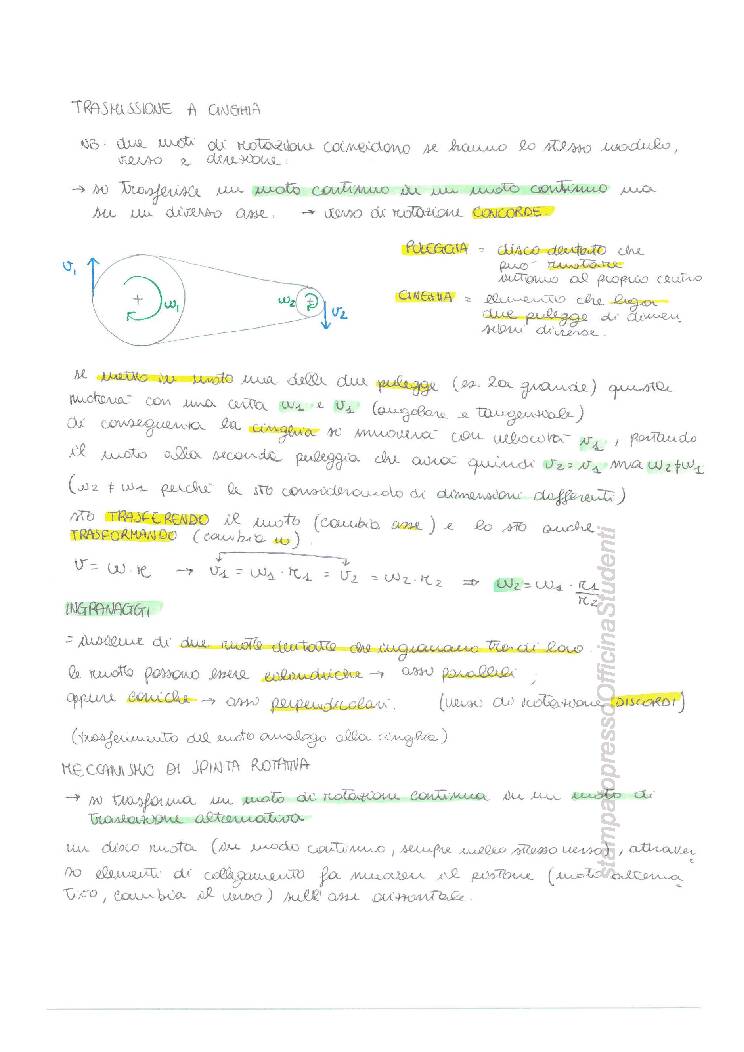 TRASMISSIONE A CINGHIA
NB. due moti di rotazione coincidono se hanno lo stesso modulo,
verso e direzione.
→ si trasferisce un moto continuo in un moto continuo ma
su un diverso asse. → verso di rotazione CONCORDE
PULEGGIA = disco dentato che
può ruotare
intorno al proprio centro
CINGHIA = elemento che lega
due pulegge di dimen
sioni diverse.
v1 ω1 ω2 v2
se metto in moto una delle due pulegge (es. la grande) questa
ruoterà con una certa ω1 e v1 (angolare e tangenziale)
di conseguenza la cinghia si muoverà con velocità v1, portando
il moto alla seconda puleggia che avrà quindi v2=v1 ma ω2≠ω1
(ω2 ≠ ω1 perché le sto considerando di dimensioni differenti)
sto TRASFERENDO il moto (cambia asse) e lo sto anche
TRASFORMANDO (cambia ω).
v = ω·r → v1 = ω1·r1 = v2 = ω2·r2 ⇒ ω2 = ω1 · r1/r2
INGRANAGGI
= insieme di due ruote dentate che ingranano tra di loro.
le ruote possono essere cilindriche → assi paralleli,
oppure coniche → assi perpendicolari. (verso di rotazione DISCORDI)
(trasferimento del moto analogo alla cinghia)
MECCANISMO DI SPINTA ROTATIVA
→ si trasforma un moto di rotazione continua in un moto di
traslazione alternativa
un disco ruota (in modo continuo, sempre nello stesso verso), attraver
so elementi di collegamento fa muovere il pistone (moto alterna
tivo, cambia il verso) sull'asse orizzontale.
stampatopressoOfficinaStudenti